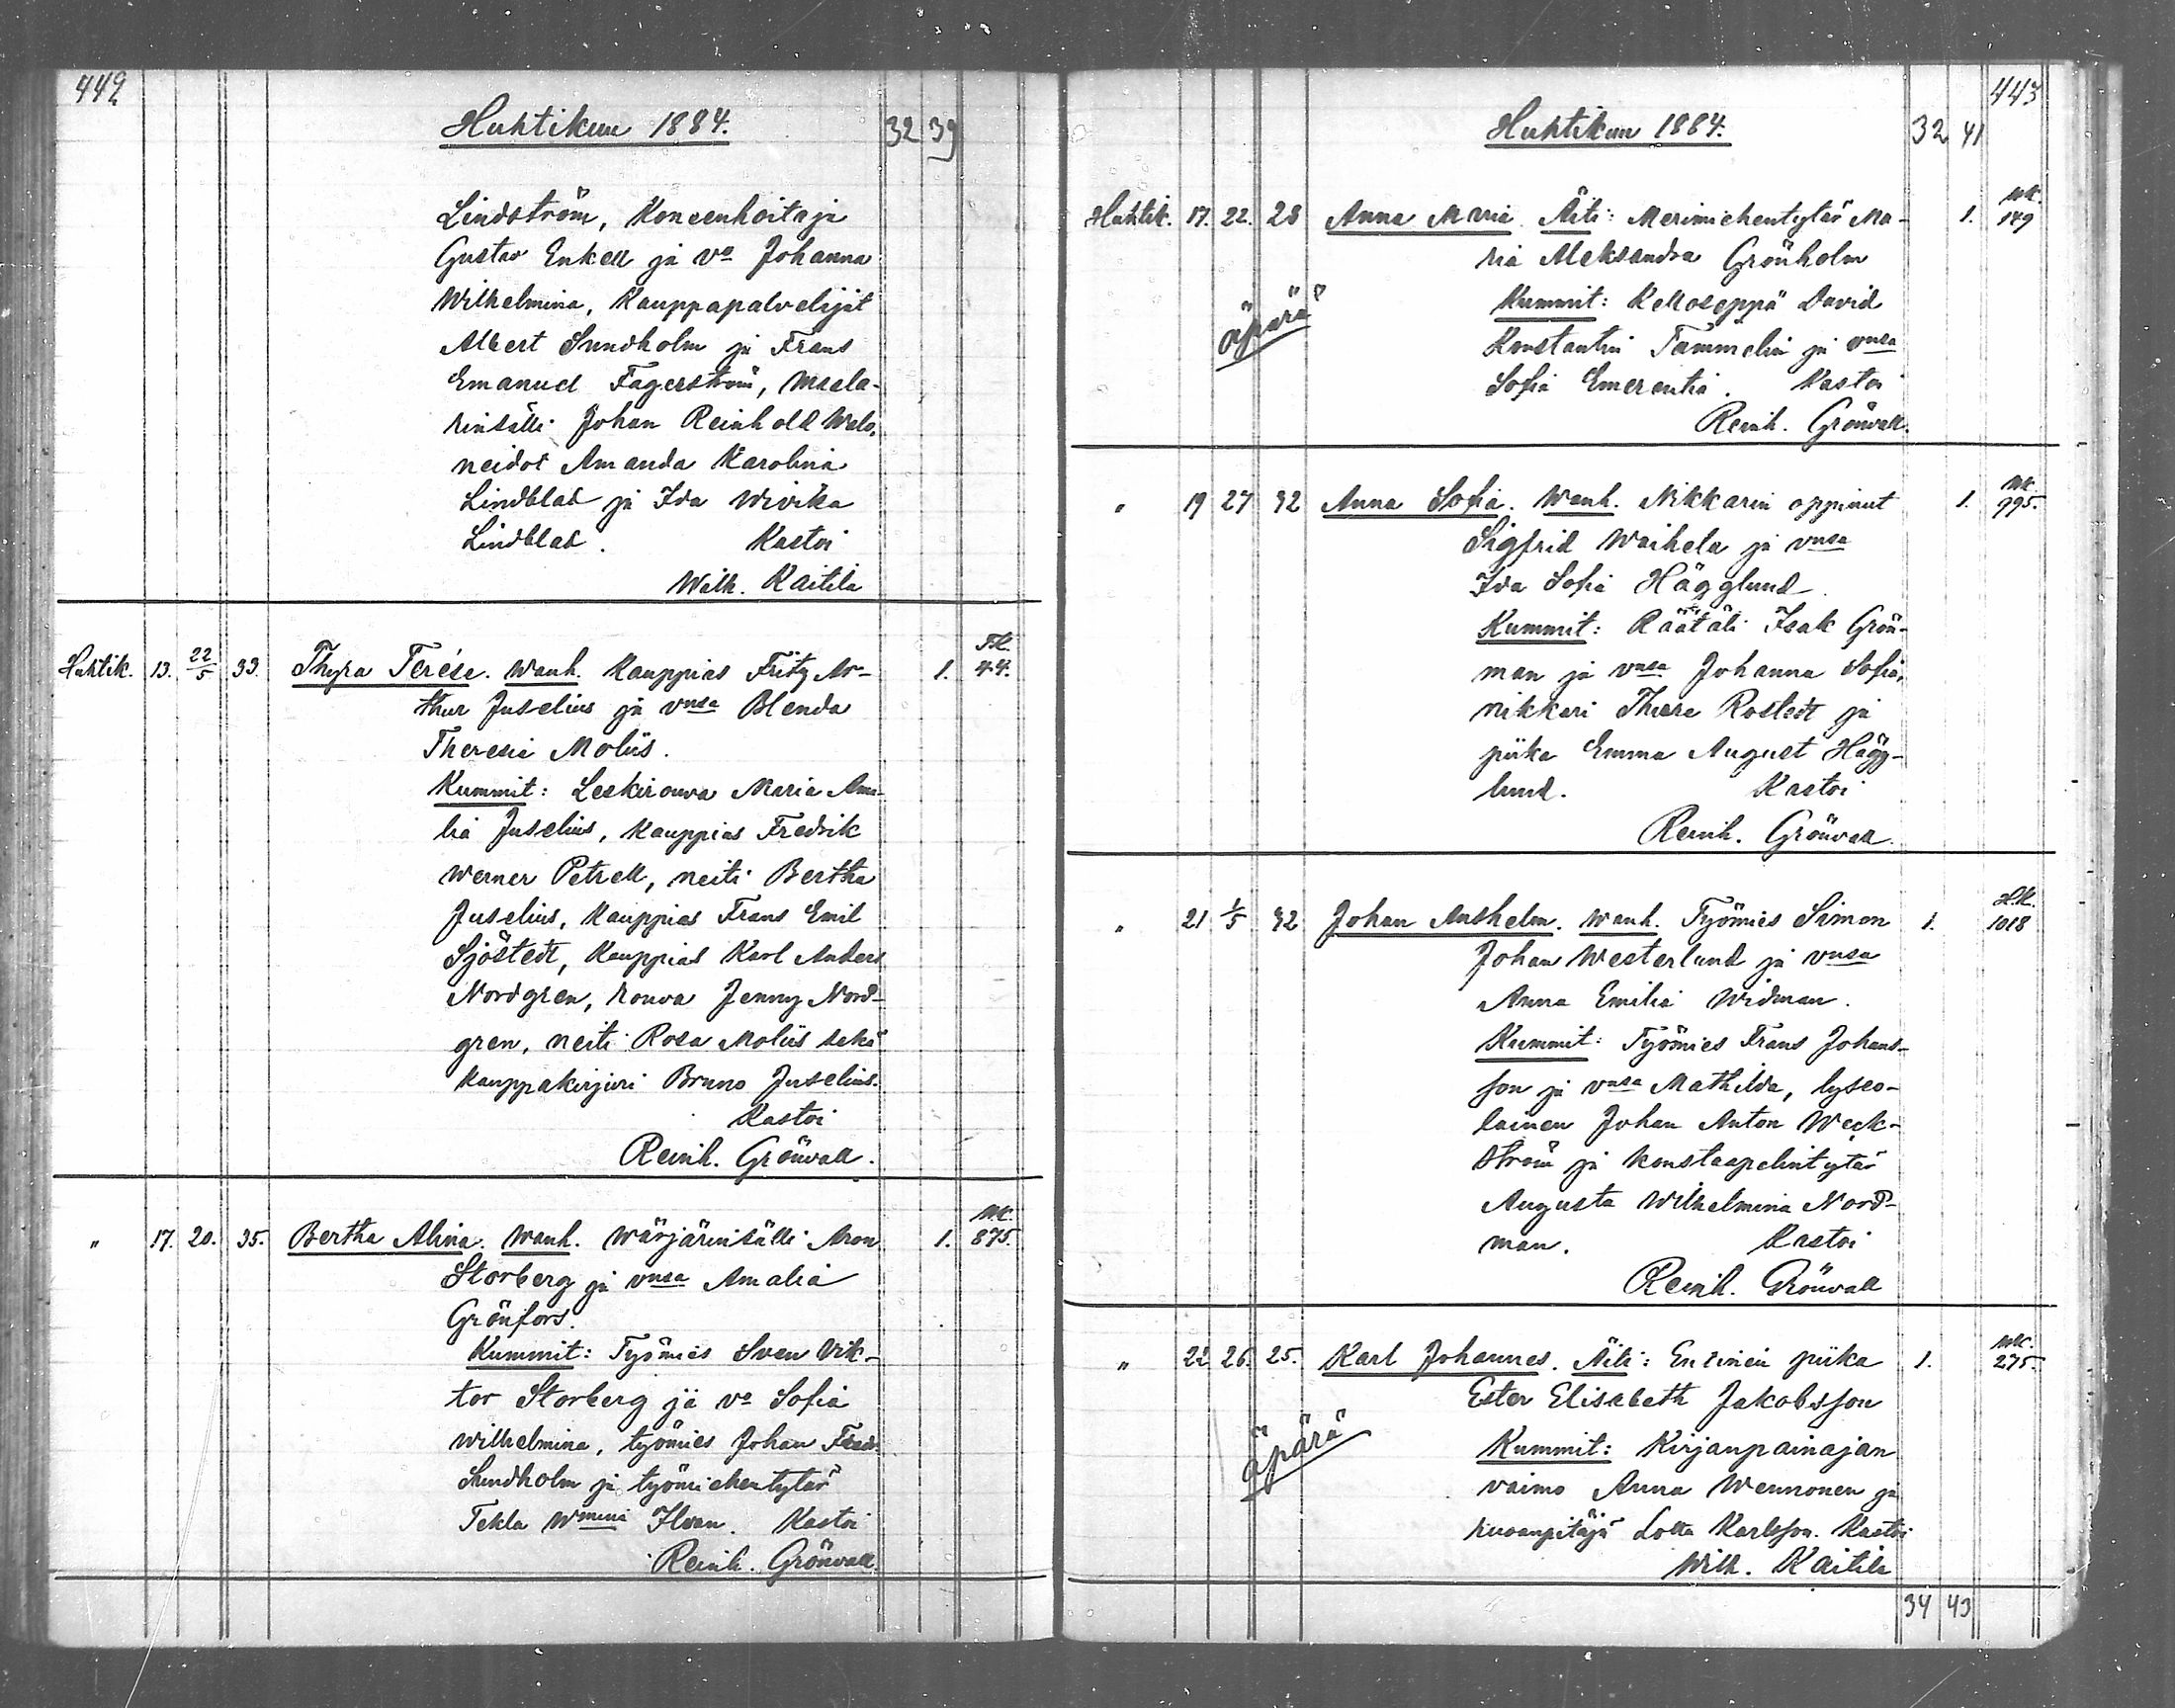 442
Huhtikuu 1884.
32 39
Lindström, Koneenhoitaja
Gustav Enkell ja va Johanna
Wilhelmina, Kauppapalvelijat
Albert Sundholm ja Frans
Emanuel Fagerström, maala-
rinsälli Johan Reinhold
neidot Amanda Karolina
Lindblad ja Ida Wivika
Lindblad. Kastoi
Wilh. Kaitila
Huhtik. 13. 22/5 33. Thyra Terése. Wanh. Kauppias Fritz Ar- 1. 44.
thur Juselius ja vnsa Blenda
Theresia Moliis.
Kummit: Leskirouva Maria Ama-
lia Juselius, Kauppias Fredrik
Werner Petrell, neiti Bertha
Juselius, Kauppias Frans Emil
Sjöstedt, Kauppias Karl Anders
Nordgren, rouva Jenny Nord-
gren, neiti Rosa Moliis sekä
Kauppakirjuri Bruno Juselius.
Kastoi
Reinh. Grönvall.
" 17. 20. 35. Bertha Alina. Wanh. Wärjärinsälli Aron 1. 875.
Storberg ja vnsa Amalia
Grönfors.
Kummit: Työmies Sven Vik-
tor Storberg ja va Sofia
Wilhelmina, työmies Johan Fredr.
Sundholm ja työmiehentytär
Tekla Wmina Kastoi
Reinh. Grönvall.
443
Huhtikuu 1884.
32 41
Huhtik. 17. 22. 28 Anna Maria. Äiti: Merimiehentytär Ma- 1. MK. 149
ria Aleksandra Grönholm
äpärä
Kummit: Kelloseppä David
Konstantin Tammelin ja vnsa
Sofia Emerentia. Kastoi
Reinh. Grönvall.
" 19 27 32 Anna Sofia. Wanh. Nikkarin oppinut 1. MK. 995.
Sigfrid Waihela ja vnsa
Ida Sofia Hägglund.
Kummit: Räätäli Isak Grön-
man ja vnsa Johanna Sofia,
nikkari Rostedt ja
piika Emma August Hägg-
lund. Kastoi
Reinh. Grönvall.
" 21 1/5 32 Johan Anshelm. Wanh. Työmies Simon 1. 1018
Johan Westerlund ja vnsa
Anna Emilia Widman.
Kummit: Työmies Frans Johans-
son ja vnsa Mathilda, lyseo-
lainen Johan Anton Weck-
ström ja konstaapelintytär
Augusta Wilhelmina Nord-
man. Kastoi
Reinh. Grönvall
" 22 26. 25. Karl Johannes. Äiti: Entinen piika 1. MK. 275.
Ester Elisabeth Jakobsson
äpärä
Kummit: Kirjanpainajan
vaimo Anna Wennonen ja
ruoanpitäjä Lotta Karlsson. Kastoi
Wilh. Kaitila
34 43